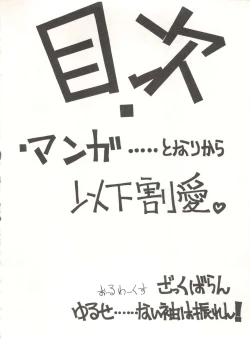 目・次
・マンガ・・・・・となりから
以下割愛♡
おーるわーくす ざっくばらん
ゆるせ・・・・・・ない袖は振れん!